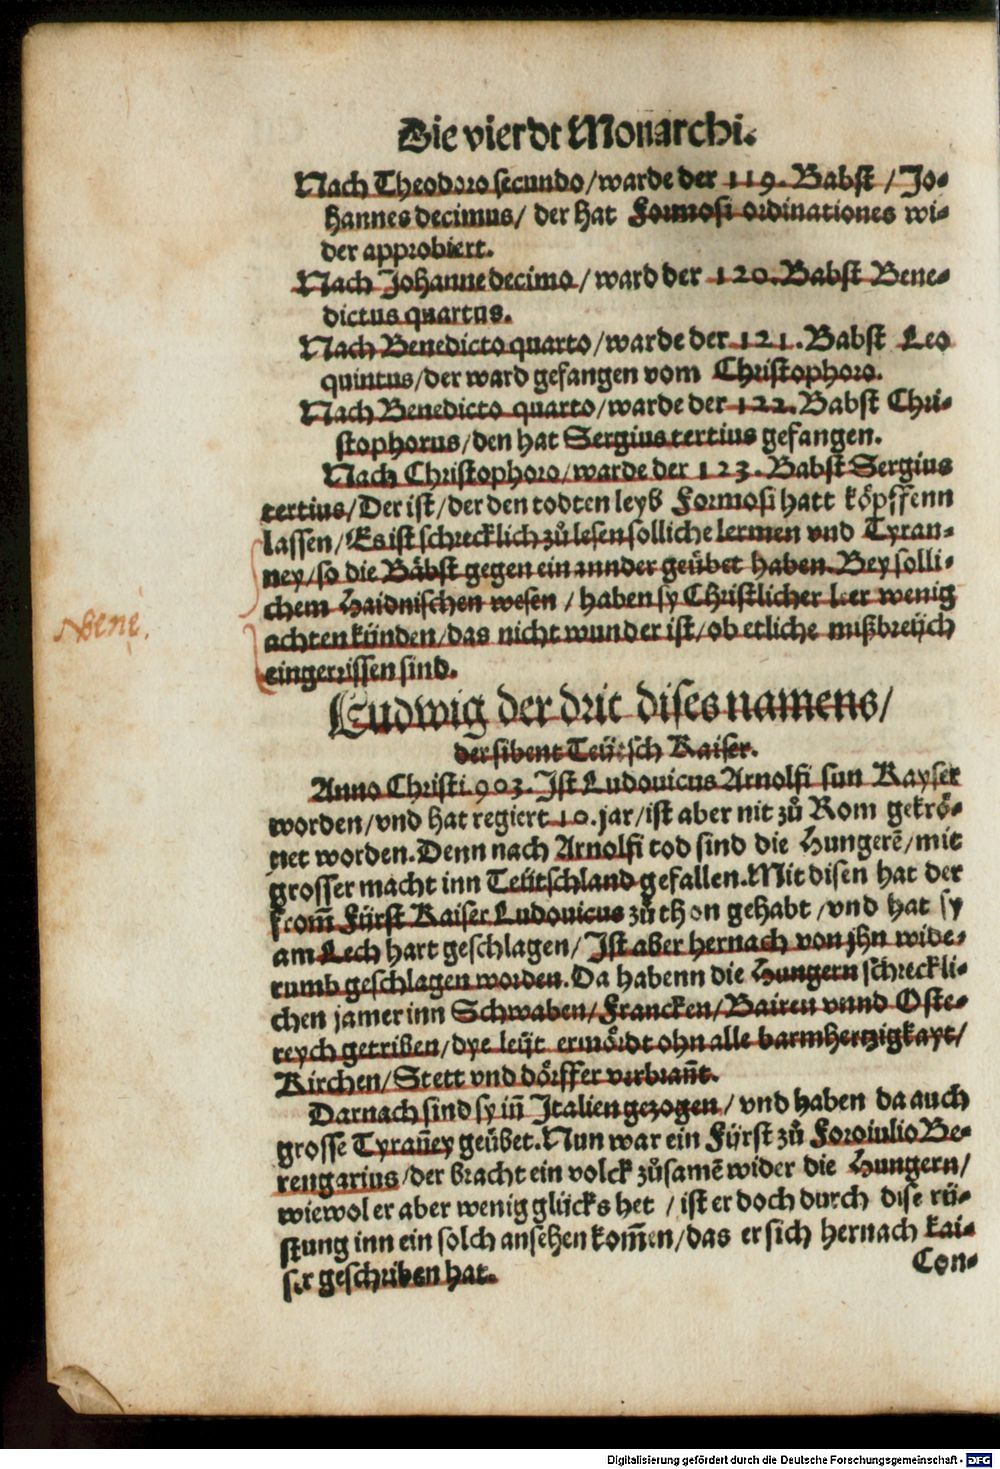 Die vierdt Monarchi.
Nach Theodoro secundo/warde der 119. Babst / Jo-
hannes decimus/ der hat Formosi ordinationes wi-
der approbiert.
Nach Johanne decimo / ward der 120. Babst Bene-
dictus quartus.
Nach Benedicto quarto/warde der 121. Babst Leo
quintus/der ward gefangen vom Christophoro.
Nach Benedicto quarto/warde der 122. Babst Chri-
stophorus/den hat Sergius tertius gefangen.
Nach Christophoro/warde der 123. Babst Sergius
tertius/Der ist/der den todten leyb Formosi hatt köpffenn
lassen/Es ist schrecklich zů lesen solliche lermen vnd Tyran-
ney/so die Bäbst gegen ein annder geübet haben. Bey solli-
chem Haidnischen wesen / haben sy Christlicher leer wenig
achten künden/das nicht wunder ist/ob etliche mißbreüch
eingerrissen sind.
Nbene.
Ludwig der drit dises namens/
der sibent Teütsch Kaiser.
Anno Christi 903. Ist Ludouicus Arnolfi sun Kayser
worden/vnd hat regiert 10. jar/ist aber nit zů Rom gekrö-
net worden. Denn nach Arnolfi tod sind die Hungerē/mit
grosser macht inn Teütschland gefallen. Mit disen hat der
from̄ Fürst Kaiser Ludouicus zů thon gehabt /vnd hat sy
am Lech hart geschlagen/ Ist aber hernach von jhn wide-
rumb geschlagen worden. Da habenn die Hungern schreckli-
chen jamer inn Schwaben/Francken/Bairen vnnd Oste-
reych getriben/dye leüt ermördt ohn alle barmhertzigkayt/
Kirchen/Stett vnd dörffer verbran̄t.
Darnach sind sy in̄ Italien gezogen/ vnd haben da auch
grosse Tyran̄ey geübet. Nun war ein Fürst zů Foroiulio Be-
rengarius/der bracht ein volck zůsamē wider die Hungern/
wiewol er aber wenig glücks het / ist er doch durch dise rü-
stung inn ein solch ansehen kom̄en/das er sich hernach kai-
ser geschriben hat.
Con-
Digitalisierung gefördert durch die Deutsche Forschungsgemeinschaft - DFG